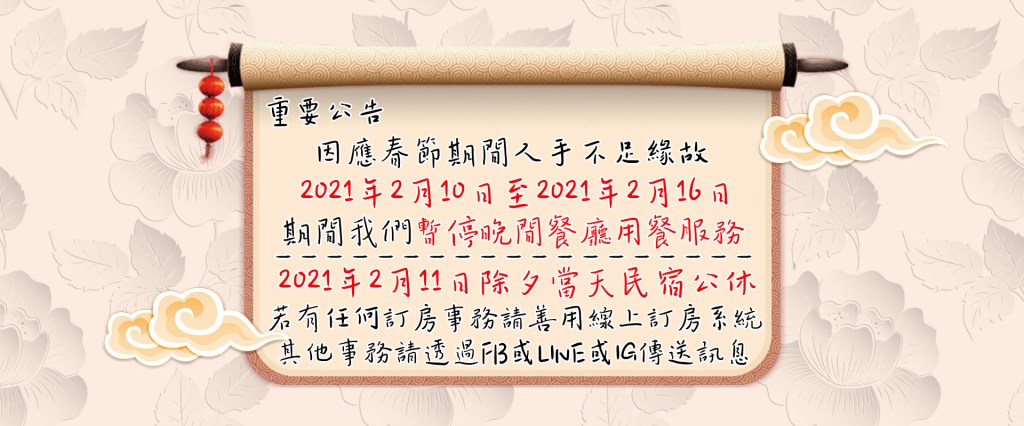 重要公告
因應春節期間人手不足緣故
2021年2月10日至2021年2月16日
期間我們暫停晚間餐廳用餐服務
2021年2月11日除夕當天民宿公休
若有任何訂房事務請善用線上訂房系統
其他事務請透過FB或LINE或IG傳送訊息